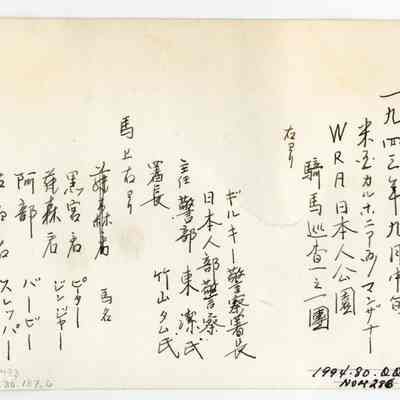 一九四三年九月中旬
米国カルホニア州マンザナー
WRA 日本人公園
騎馬巡査之一團
右ヨリ
ギルキー警察署長
日本人部警察
主任警部 東 潔氏
署長 竹山タム氏
馬上右ヨリ 馬名
黒宮君 ピター
藤森君 ジンジャー
阿部 バービー
スレッパー
1994.80.
NOM286